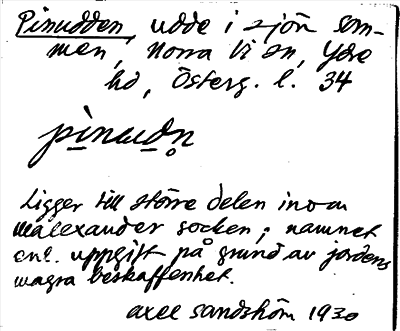 Pinudden, udde i sjön Som-
men, Norra Vi sn, Ydre
hd, Österg. l. 34
pinudn̥
Ligger till större delen inom
Malexander socken; namnet
enl. uppgift på grund av jordens
magra beskaffenhet.
Axel Sandström 1930